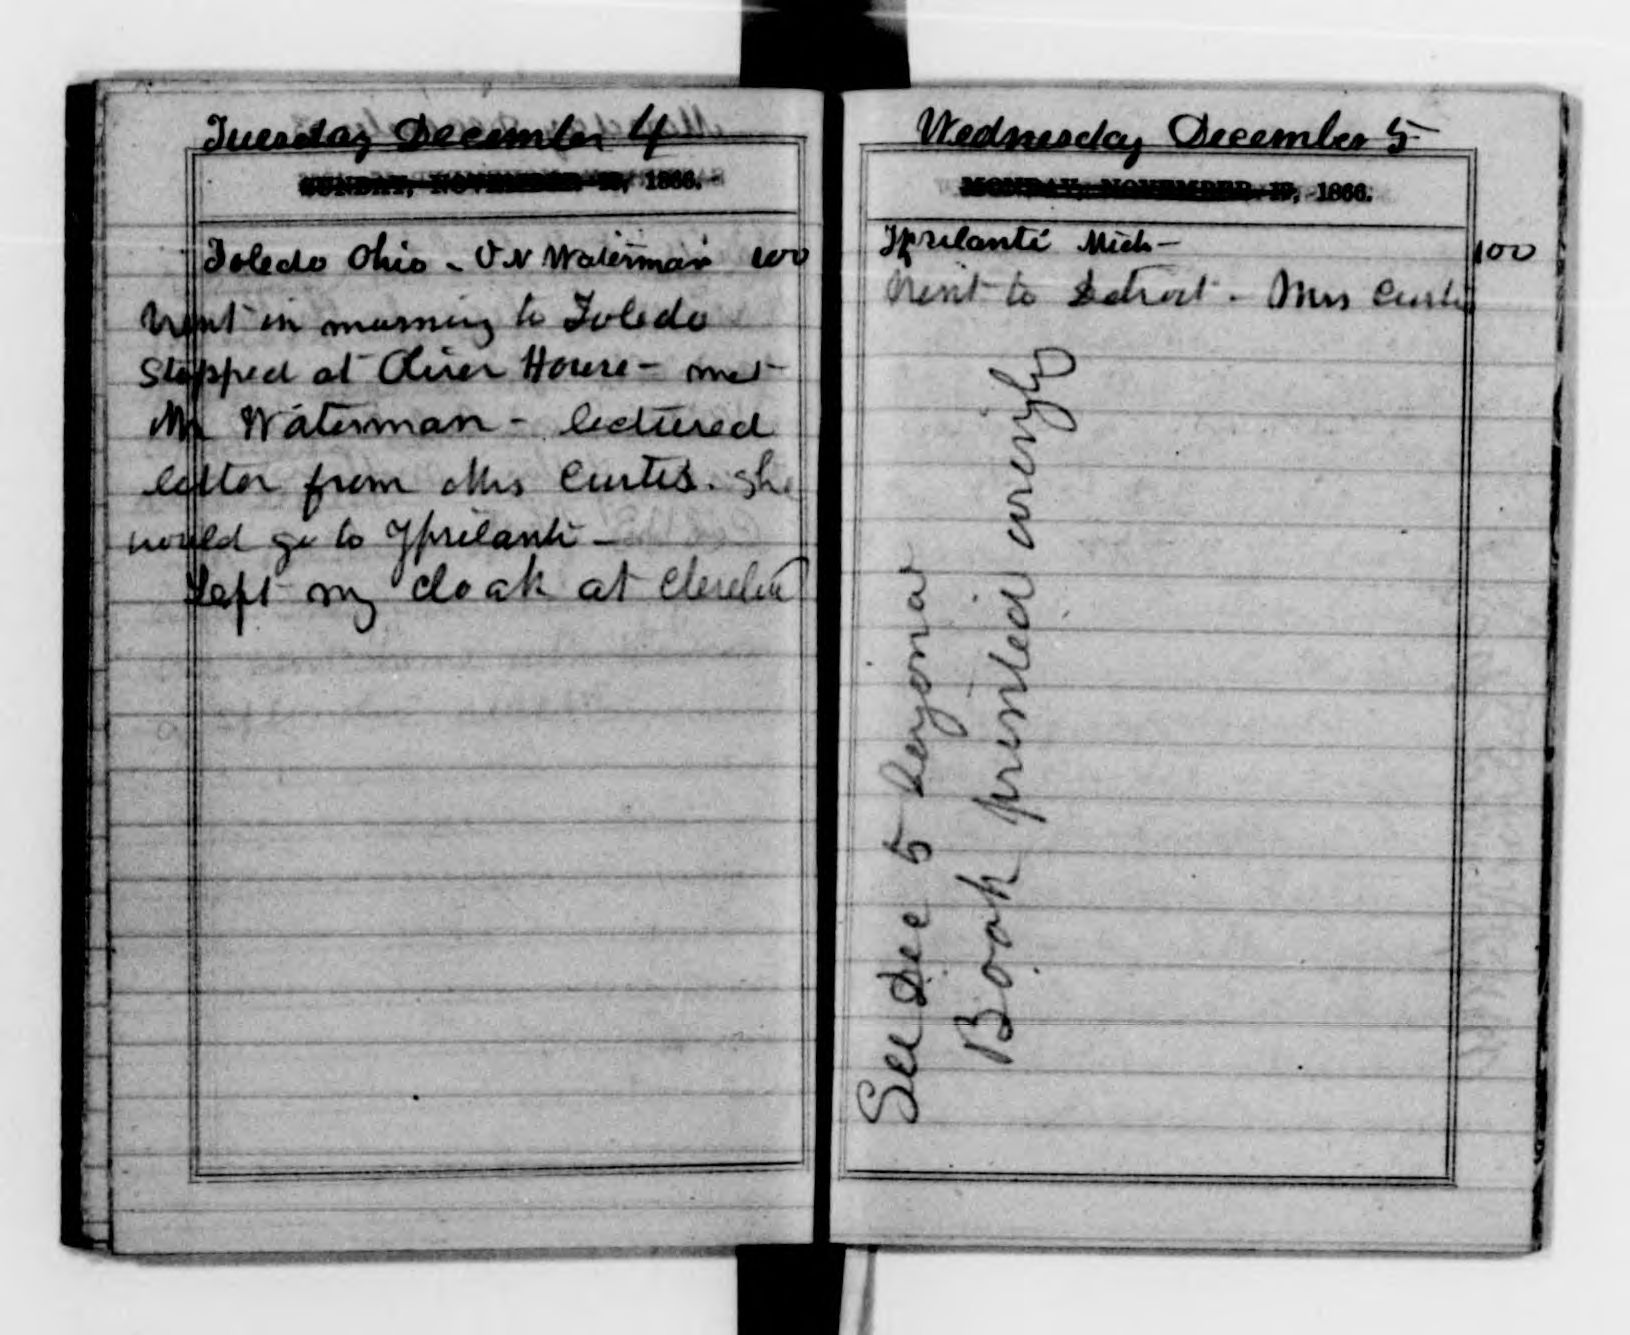 Tuesday December 4
SUNDAY, NOVEMBER 18, 1866.
Toledo Ohio - V N Waterman 100
Went in morning to Toledo
Stopped at Oliver House - met
Mr Waterman - lectured
letter from Mrs Curtis. she
would go to Ypsilanti -
Left my cloak at
Wednesday December 5
MONDAY, NOVEMBER 19, 1866.
Ypsilanti Mich - 100
Went to Detroit - Mrs Curtis
See Dec 5 beyond
Book printed wrongly